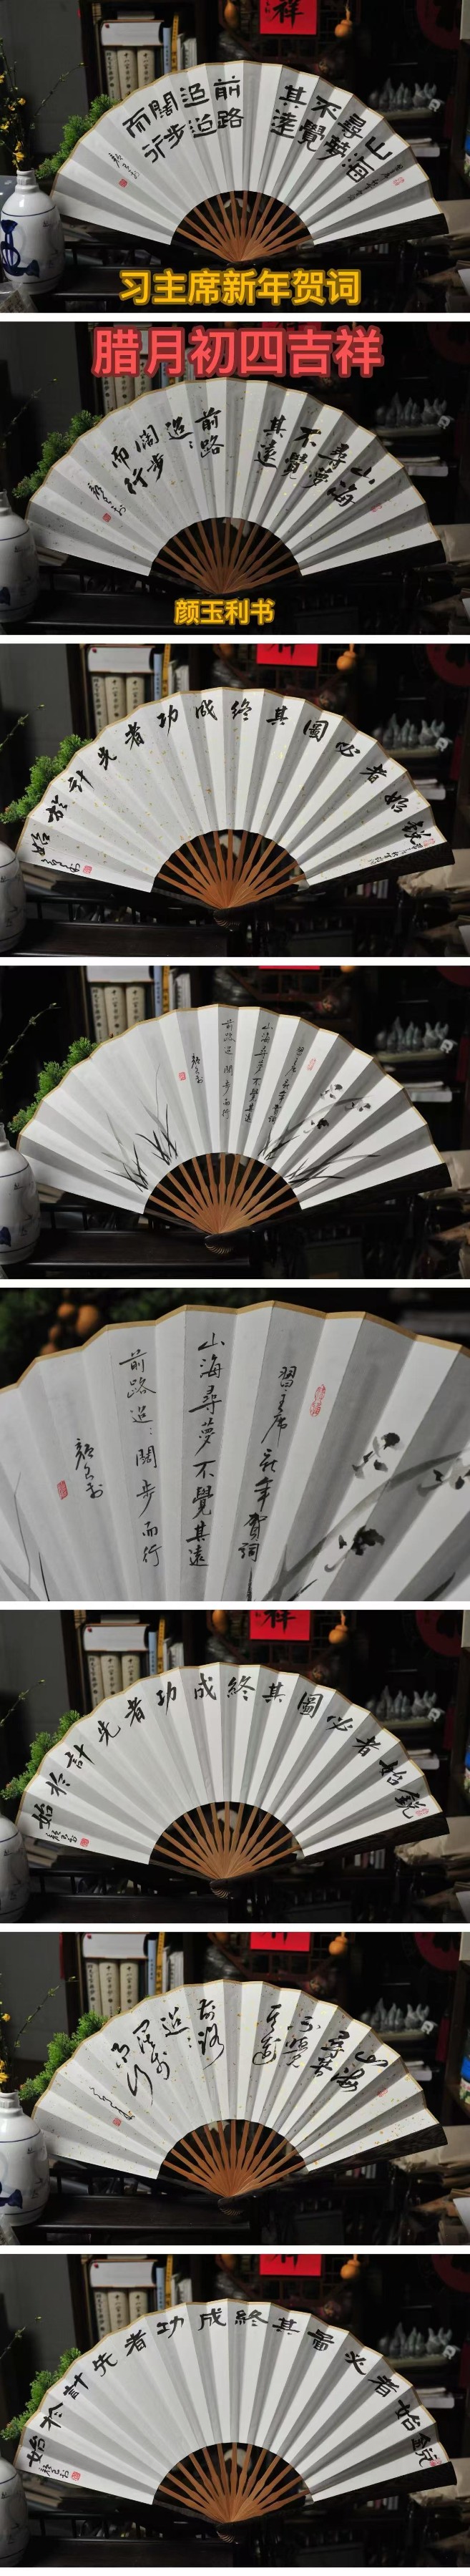 祥
山海
尋夢
不覺
其遠
前路
迢迢
闊步
而行
顏玉利
习主席新年贺词
腊月初四吉祥
山海
尋夢
不覺
其遠
前路
迢:
闊步
而行
顏玉利
颜玉利书
銳始者必圖其終成功者先計於始
習主席新年賀詞
山海尋夢不覺其遠
前路迢:闊步而行
顏玉利
習主席新年賀詞
山海尋夢不覺其遠
前路迢:闊步而行
顏玉利
祥
銳始者必圖其終成功者先計於始
顏玉利
山海
尋夢
不覺
其遠
前路
迢:
闊步
而行
銳始者必圖其終成功者先計於始
顏玉利